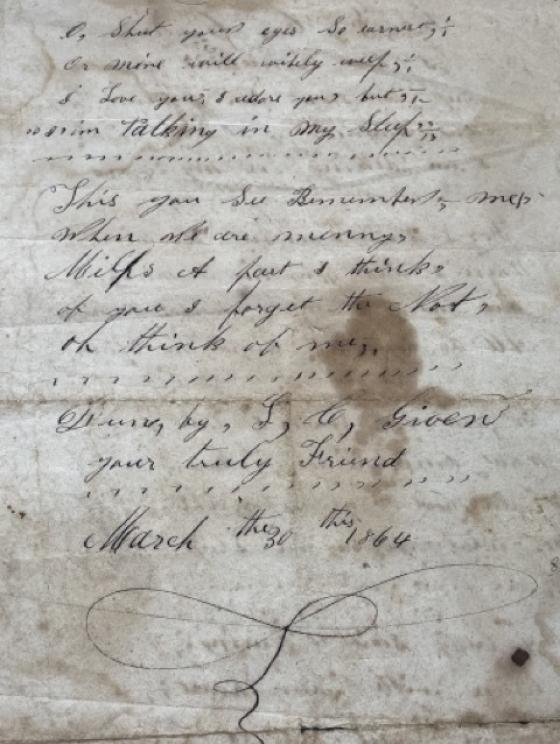 O, Shut your eyes so earnest,
Or mine will wisely weep,
I Love you, I adore you, but,
I'm Talking in my Sleep
This you See Remember, me,
When we are menny,
Milps A part I think,
of you I forget the Not,
oh think of me,
Dun, by, L, C, Given
your truly Friend
March the 30 this 1864